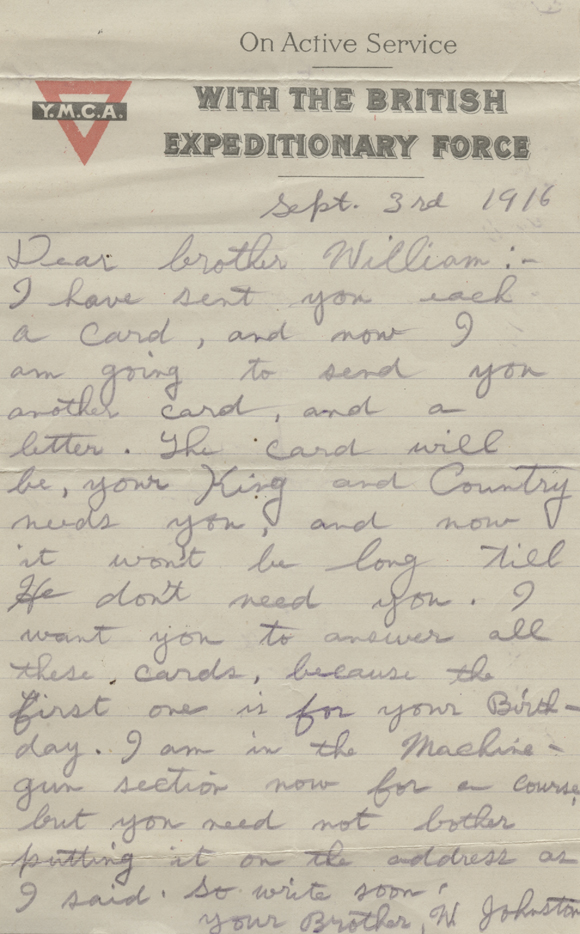 On Active Service
WITH THE BRITISH
Y.M.C.A.
EXPEDITIONARY FORCE
Sept. 3rd 1916
Dear brother William:-
I have sent you each
a card, and now I
am going to send you
another card, and a
letter. The card will
be, your King and Country
needs you, and now
it won't be long till
He don't need you. I
want you to answer all
these cards, because the
first one is for your Birth-
day. I am in the Machine-
gun section now for a course,
but you need not bother
putting it on the address as
I said. So write soon,
your Brother, W Johnston